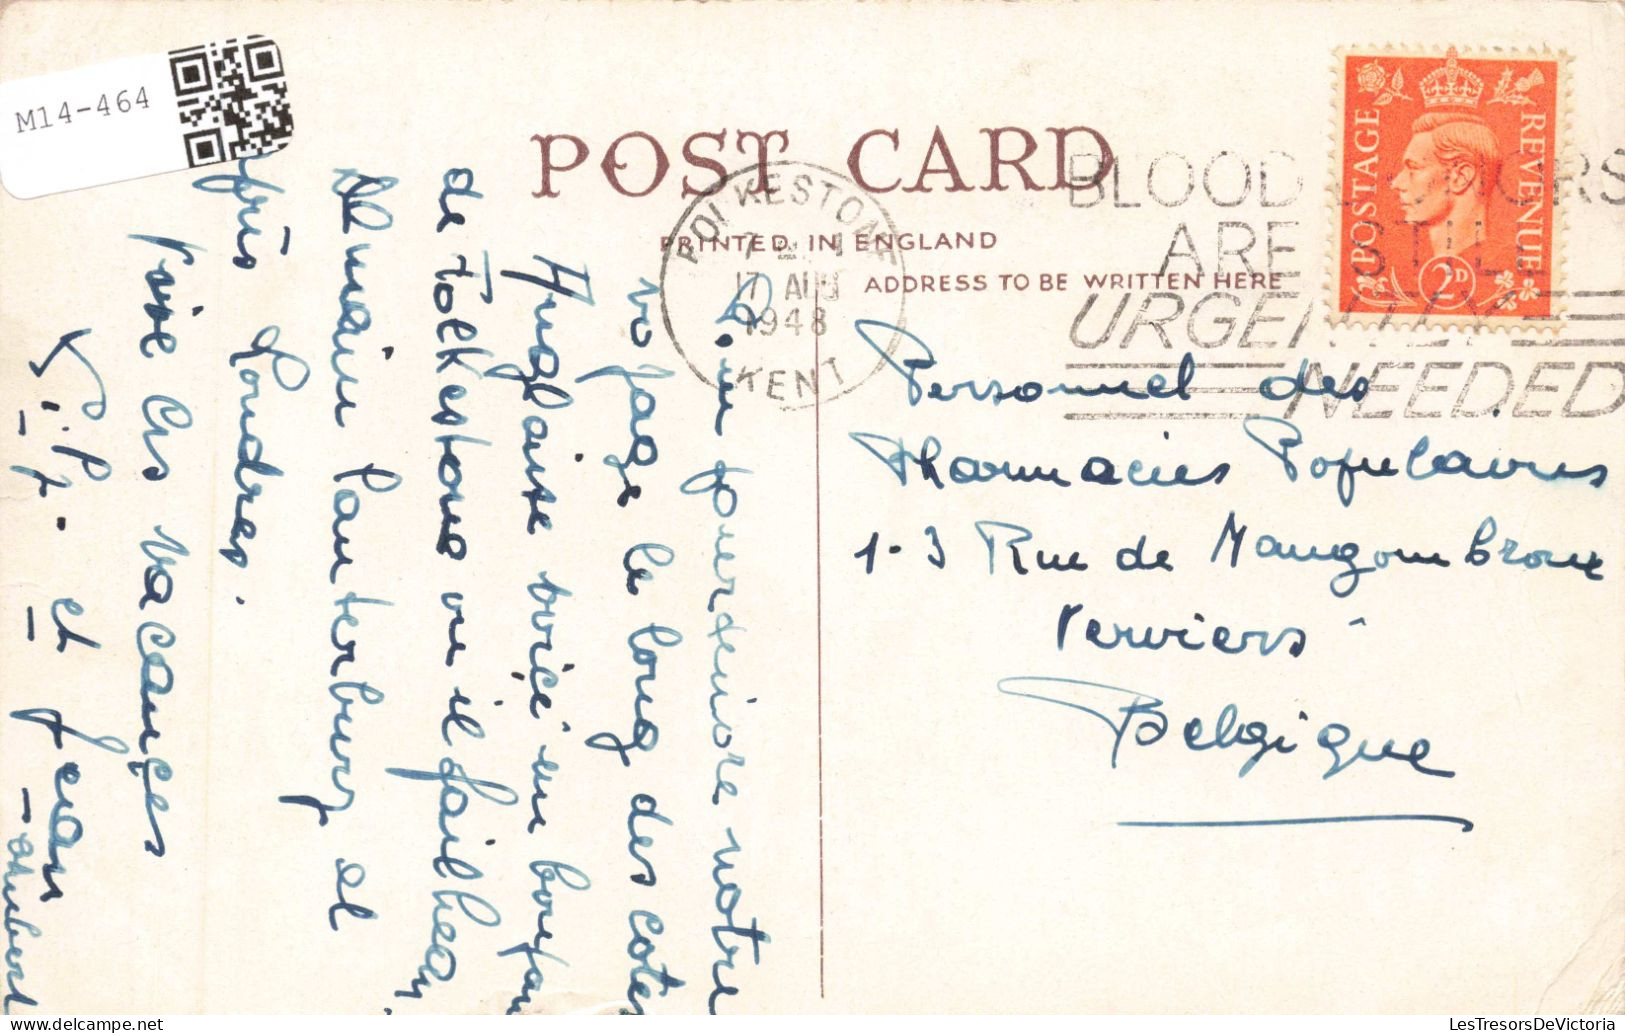 M14-464
POST CARD
PRINTED IN ENGLAND
ADDRESS TO BE WRITTEN HERE
FOLKESTONE
17 AUG
1948
KENT
BLOOD DONORS
ARE STILL
URGENTLY
NEEDED
POSTAGE
REVENUE
2D
Personnel des
Pharmacies Populaires
1-3 Rue de Mangombroux
Verviers
Belgique
notre
voyage le long des cotes
Anglaise voici un bonjour
de Folkestone où il fait beau
Demain Canterbury et
après Londres.
Vive les vacances
et Jean
LesTresorsDeVictoria